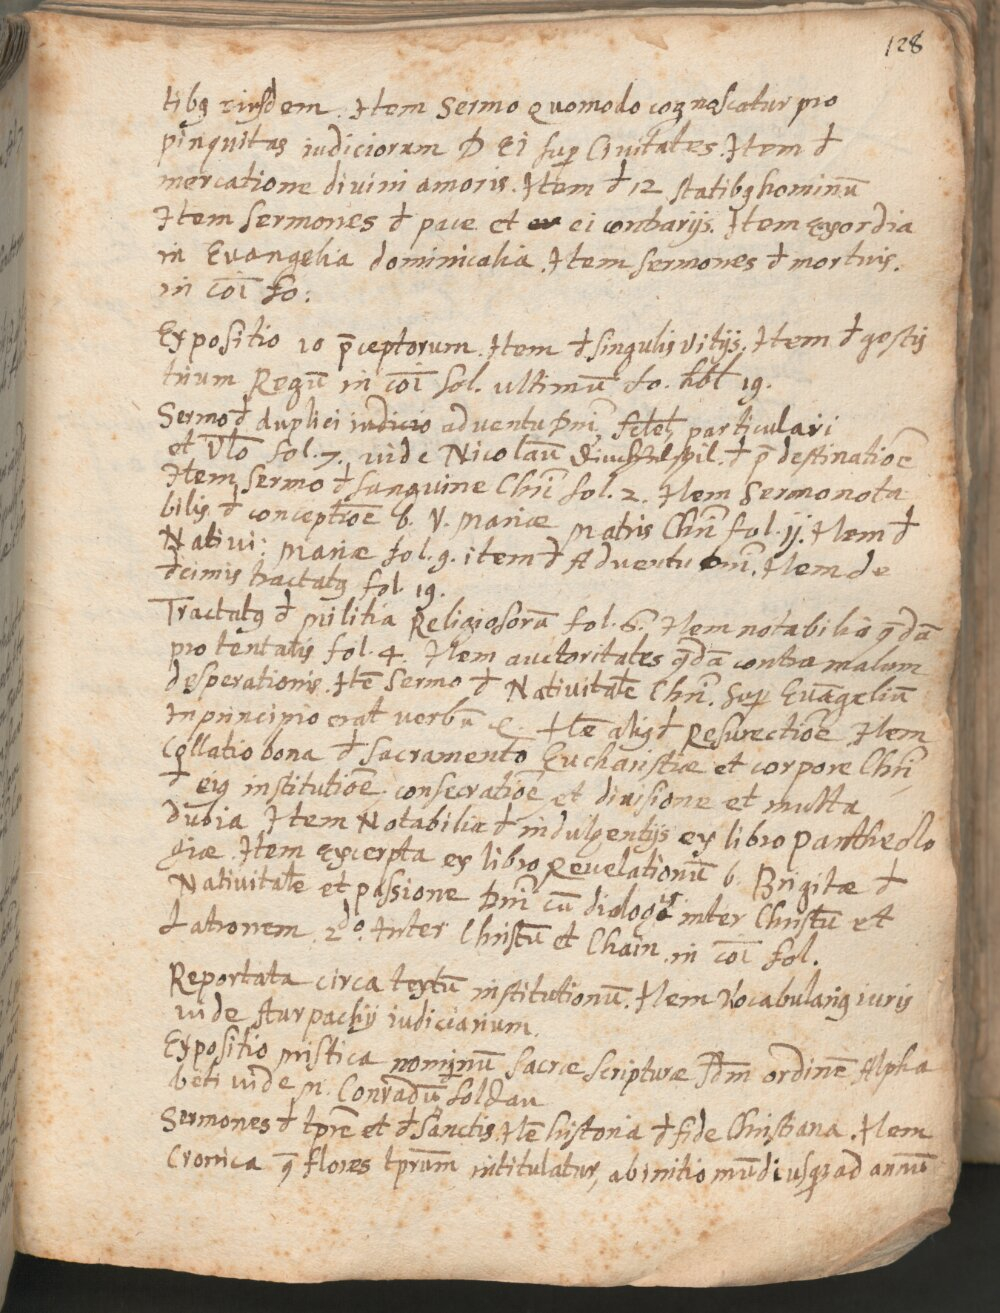 128
tibꝫ eiusdem. Item Sermo quomodo cognoscatur pro
pinquitas iudiciorum DEI sup Civitates. Item đ
mercatione divini amoris. Item đ 12 statibꝫ hominū
Item Sermones đ pace et ei contrarijs. Item exordia
in Evangelia dominicalia. Item sermones đ mortuis.
in cōi fo:
Expositio 10 p̄ceptorum. Item đ singulis vitijs. Item đ gestis
trium Regū in cōi fol. ultimū fo. 19.
Sermo đ duplici iudicio adventu Dm̄i particulari
et Vl̄o fol. 7. vide Nicolaū đ p̄destinatiōe
Item Sermo đ sanguine Chr̄i fol. 2. Item Sermo nota
bilis đ conceptiōe b. V. Mariæ Matris Chr̄i fol. ij. Item đ
Nativi: Mariæ fol. 9. item đ Adventu Dm̄i. Item de
đcimis tractatꝫ fol. 19.
Tractatꝫ đ Militia Religiosorū fol. 6. Item notabilia q̄dā
pro tentatis fol. 4. Item auctoritates q̄dā contra malum
desperationis. Itē Sermo đ Nativitate Chr̄i. Sup Evāgeliū
In principio erat verbū &. Itē aliq đ Resurectiōe Item
Collatio bona đ Sacramento Eucharistiæ et corpore Chr̄i
đ eiꝫ institutiōe consecratiōe et divisione et multa
dubia Item Notabilia đ indulgentijs ex libro Pantheolo
giæ. Item excerpta ex libro Revelationū b. Brigitæ đ
Nativitate et passione Dm̄i cū dialogis inter Christū et
Latronem. 2do. Inter Christū et Chain. in cōi fol.
Reportata circa textū institutionū. Item Vocabulariꝫ iuris
vide sturpachij iudiciarium.
Expositio mistica nominū Sacræ Scripturæ sdm ordinē Alpha
beti vide M. Conradū Soldau
Sermones đ tp̄re et đ Sanctis. Itē historia đ fide Christiana. Item
Cronica q̄ flores tp̄rum intitulatur, ab initio mūdi usqꝫ ad annū